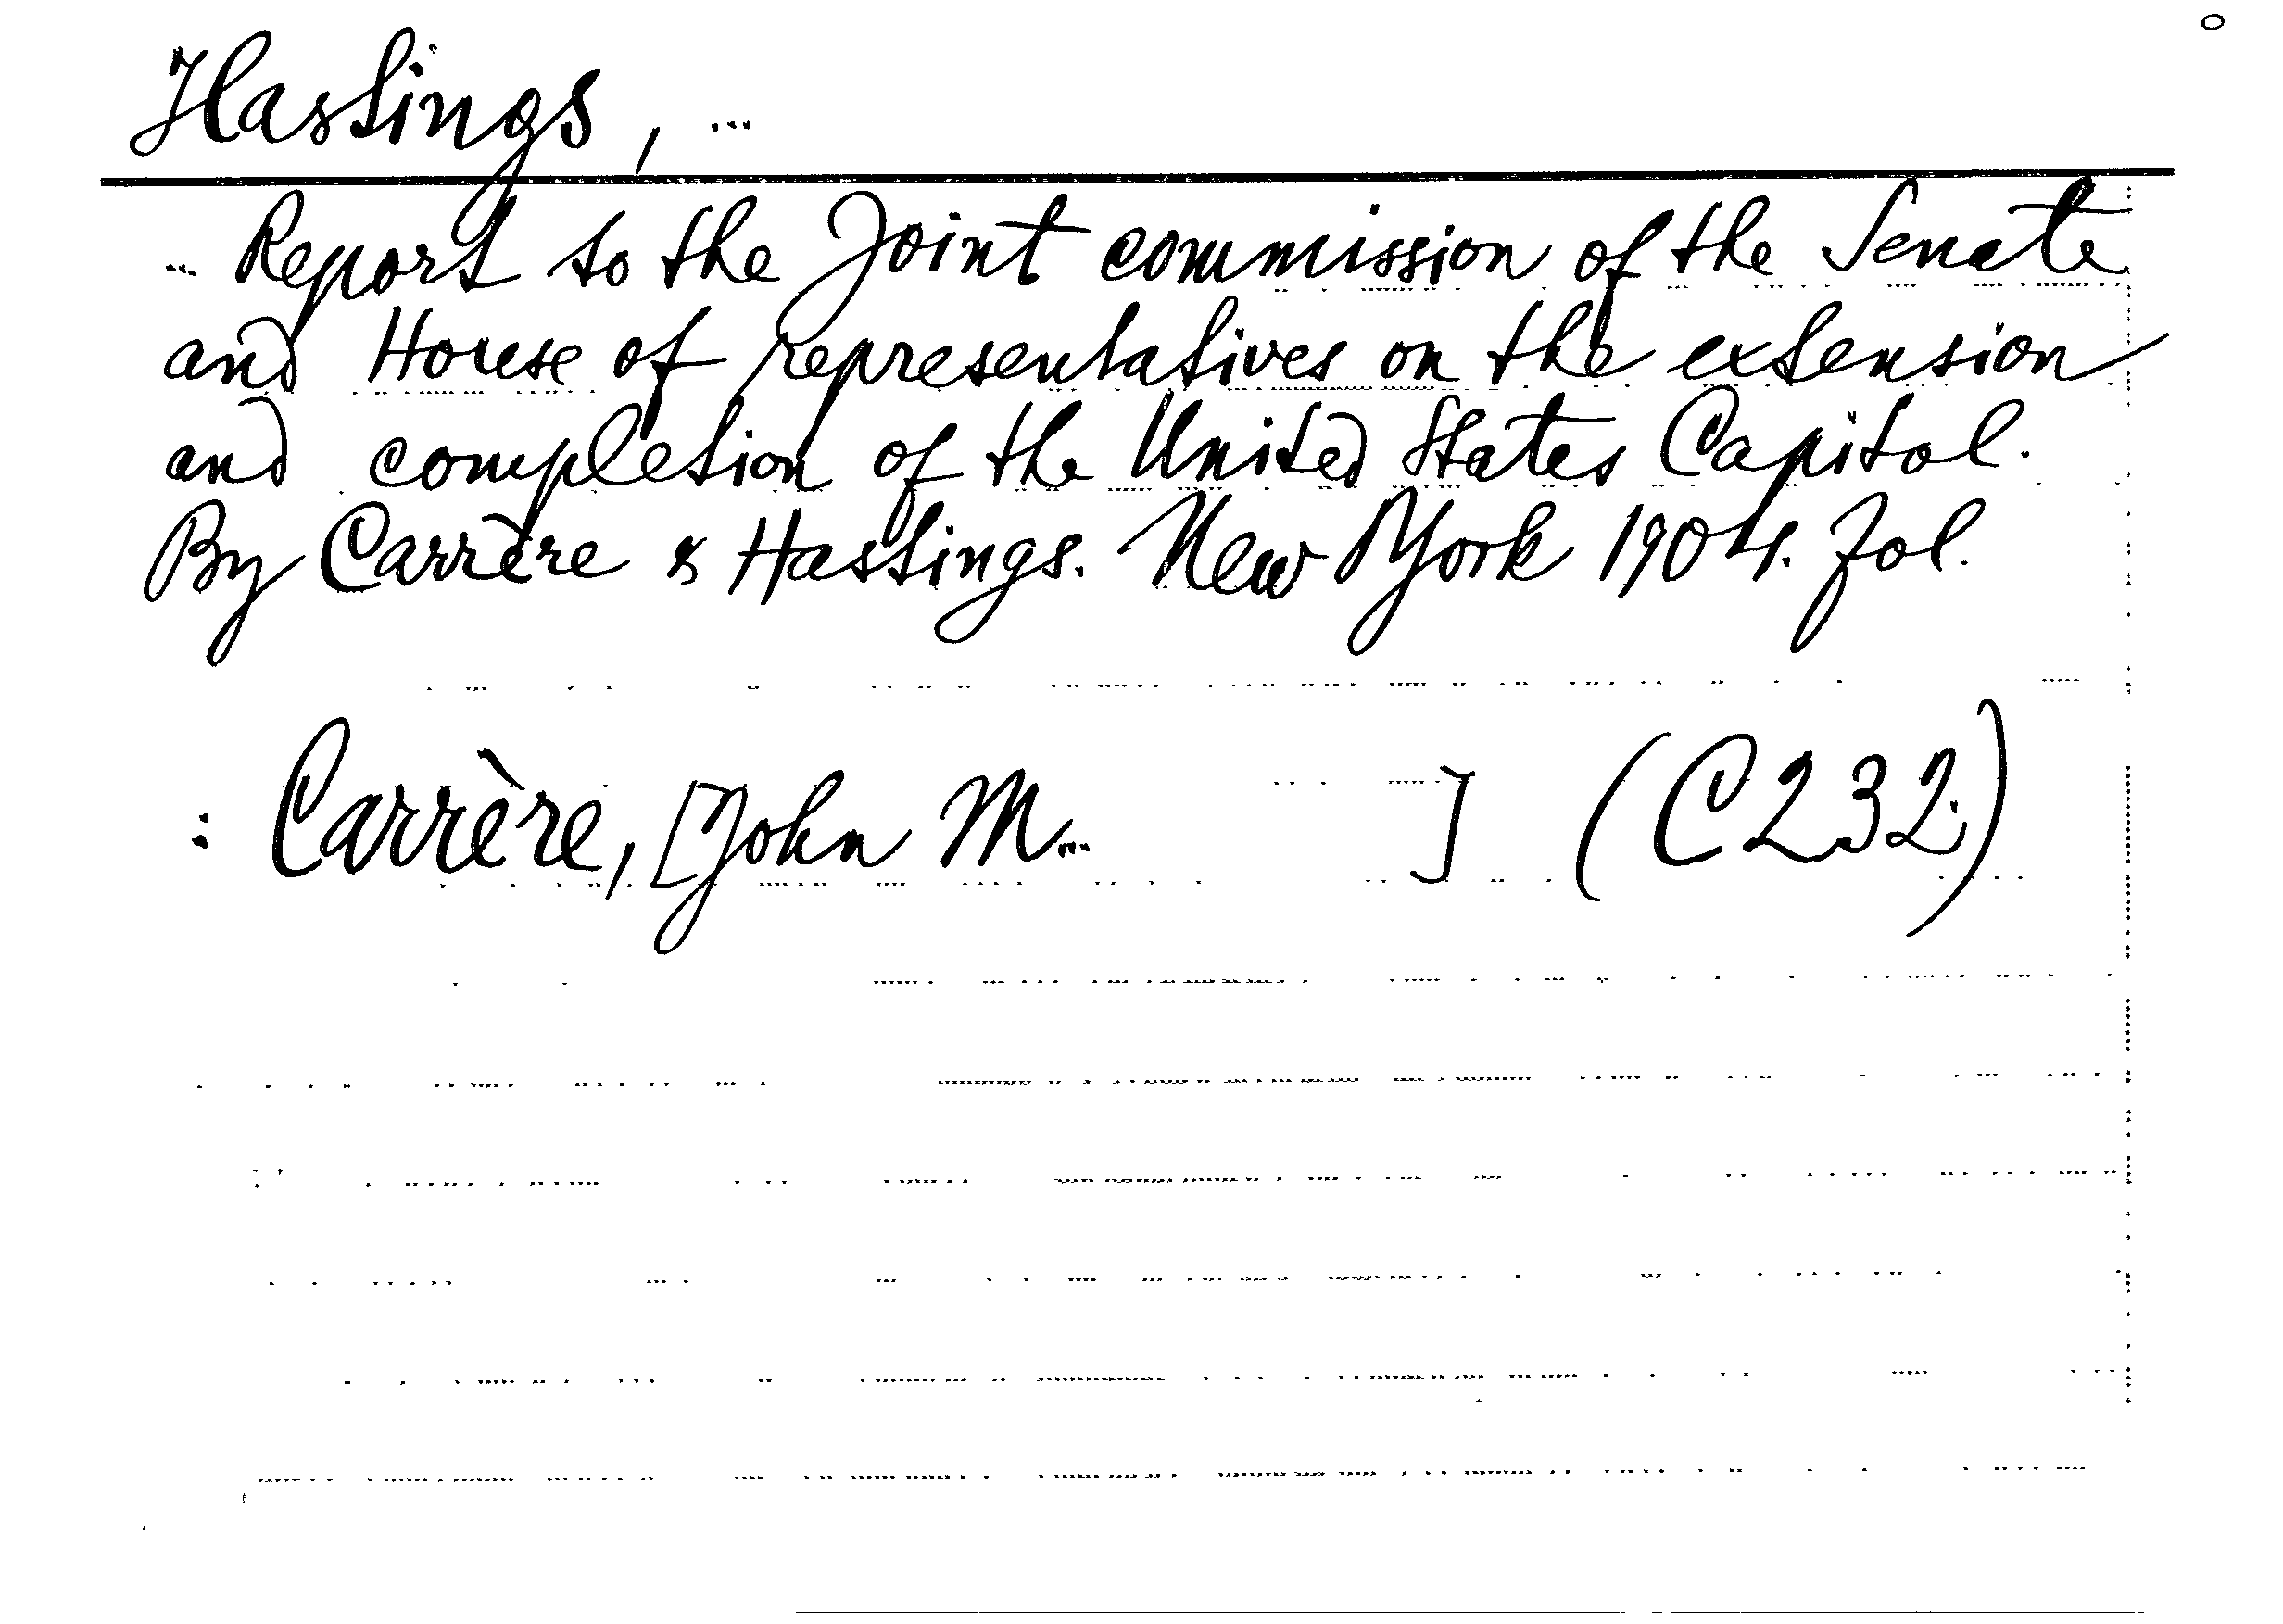 Hastings, ...
... Report to the Joint commission of the Senate
and House of representatives on the extension
and completion of the United States Capitol.
By Carrère & Hastings. New York 1904. Fol.
: Carrère, [John M... ] (C232.)